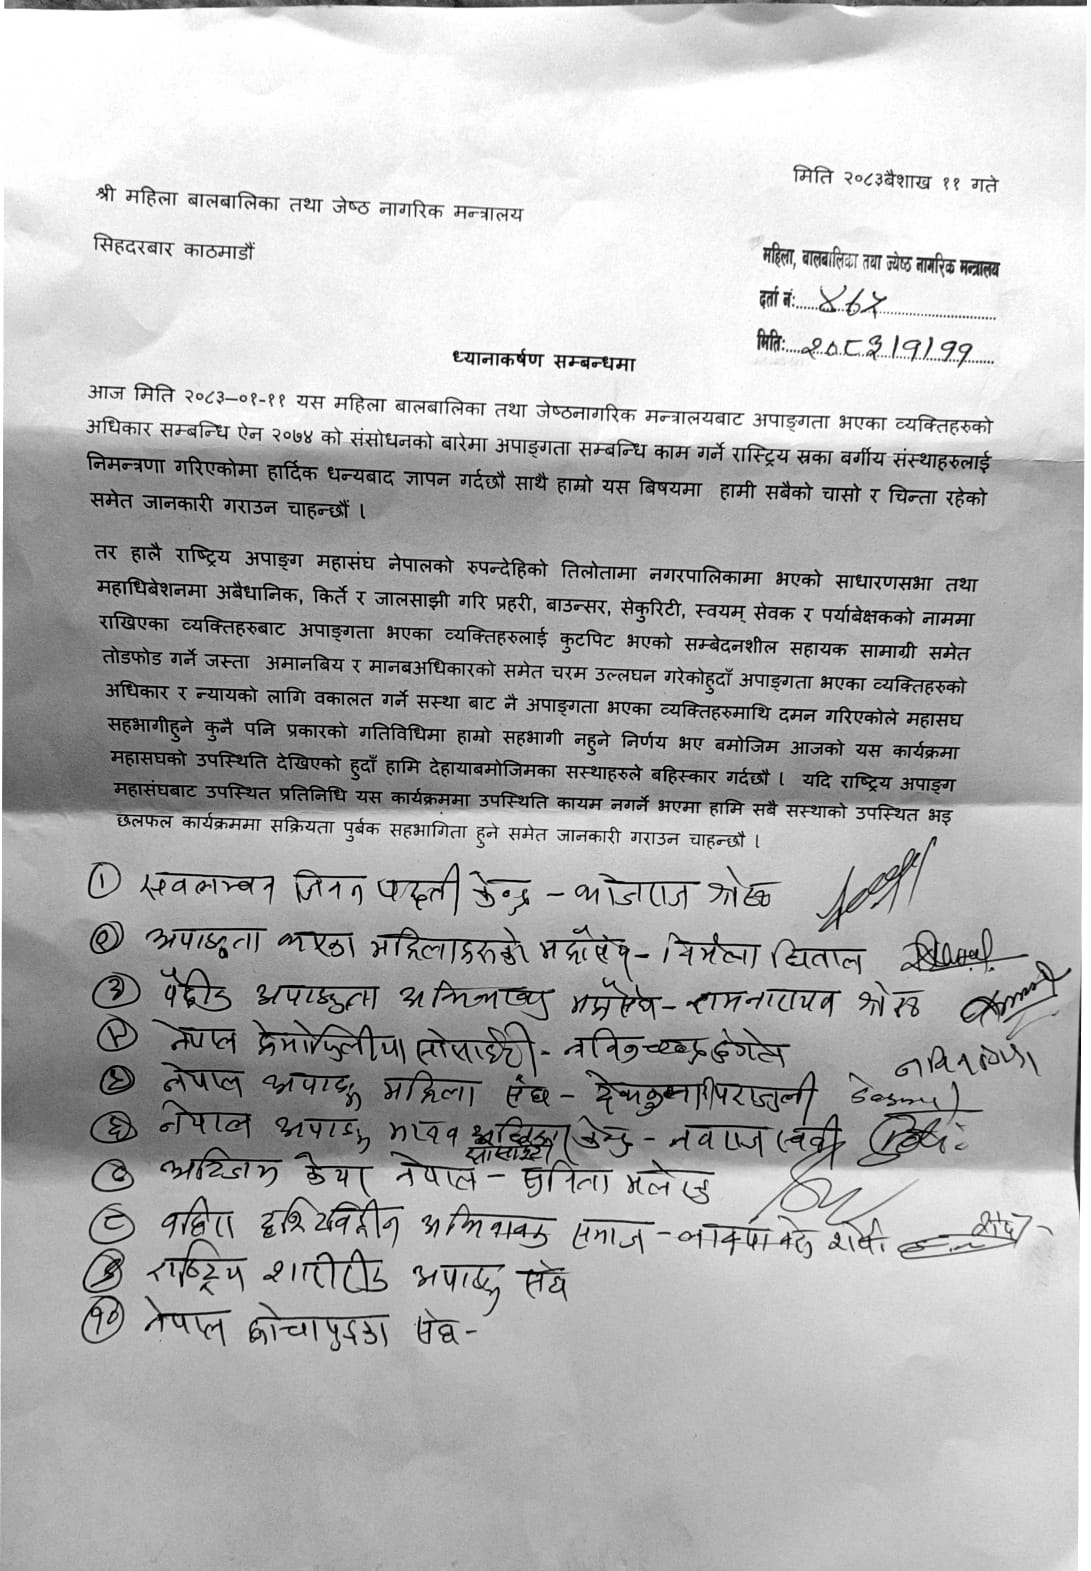 मिति २०८३बैशाख ११ गते
श्री महिला बालबालिका तथा जेष्ठ नागरिक मन्त्रालय
सिहदरबार काठमाडौं
महिला, बालबालिका तथा ज्येष्ठ नागरिक मन्त्रालय
दर्ता नं:
मिति: २०८३।१।११
ध्यानाकर्षण सम्बन्धमा
आज मिति २०८३–०१-११ यस महिला बालबालिका तथा जेष्ठनागरिक मन्त्रालयबाट अपाङ्गता भएका व्यक्तिहरुको
अधिकार सम्बन्धि ऐन २०७४ को संसोधनको बारेमा अपाङ्गता सम्बन्धि काम गर्ने रास्ट्रिय स्रका बर्गीय संस्थाहरुलाई
निमन्त्रणा गरिएकोमा हार्दिक धन्यबाद ज्ञापन गर्दछौ साथै हाम्रो यस बिषयमा हामी सबैको चासो र चिन्ता रहेको
समेत जानकारी गराउन चाहन्छौं ।
तर हालै राष्ट्रिय अपाङ्ग महासंघ नेपालको रुपन्देहिको तिलोतामा नगरपालिकामा भएको साधारणसभा तथा
महाधिबेशनमा अबैधानिक, किर्ते र जालसाझी गरि प्रहरी, बाउन्सर, सेकुरिटी, स्वयम् सेवक र पर्याबेक्षकको नाममा
राखिएका व्यक्तिहरुबाट अपाङ्गता भएका व्यक्तिहरुलाई कुटपिट भएको सम्बेदनशील सहायक सामाग्री समेत
तोडफोड गर्ने जस्ता अमानबिय र मानबअधिकारको समेत चरम उल्लघन गरेकोहुदाँ अपाङ्गता भएका व्यक्तिहरुको
अधिकार र न्यायको लागि वकालत गर्ने सस्था बाट नै अपाङ्गता भएका व्यक्तिहरुमाथि दमन गरिएकोले महासघ
सहभागीहुने कुनै पनि प्रकारको गतिविधिमा हाम्रो सहभागी नहुने निर्णय भए बमोजिम आजको यस कार्यक्रमा
महासघको उपस्थिति देखिएको हुदाँ हामि देहायाबमोजिमका सस्थाहरुले बहिस्कार गर्दछौ । यदि राष्ट्रिय अपाङ्ग
महासंघबाट उपस्थित प्रतिनिधि यस कार्यक्रममा उपस्थिति कायम नगर्ने भएमा हामि सबै सस्थाको उपस्थित भइ
छलफल कार्यक्रममा सक्रियता पुर्बक सहभागिता हुने समेत जानकारी गराउन चाहन्छौ ।
① स्वलम्बन जिवन पद्धती केन्द्र – भोजराज श्रेष्ठ
② अपाङ्गता भएका महिलाहरुको महासंघ – निर्मला धिताल
③ अपाङ्गता अभिभावक महासंघ – रामनारायण श्रेष्ठ
④ नेपाल हेमोफिलीया सोसाईटी –
⑤ नेपाल अपाङ्ग महिला संघ – देवकुमारी पराजुली
⑥ नेपाल अपाङ्ग मानव अधिकार केन्द्र – नवराज
सोसाइटी
⑦ अटिजम केयर नेपाल – सुनिता मलेकु
⑧ बहिरा दृष्टिविहीन अभिभावक समाज –
⑨ राष्ट्रिय शारीरीक अपाङ्ग संघ
⑩ नेपाल होचापुड्का संघ –